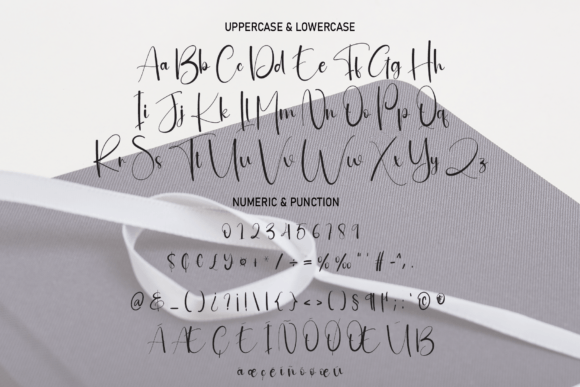 UPPERCASE & LOWERCASE
Aa Bb Cc Dd Ee Ff Gg Hh
Ii Jj Kk Ll Mm Nn Oo Pp Qq
Rr Ss Tt Uu Vv Ww Xx Yy Zz
NUMERIC & PUNCTION
0 1 2 3 4 5 6 7 8 9
/ ÷ = % ‰ " ' # - ^ , .
@ & _ ( ) ¿ ? ¡ ! | \ { } < > ( ) § ¶ ; : ' © ®